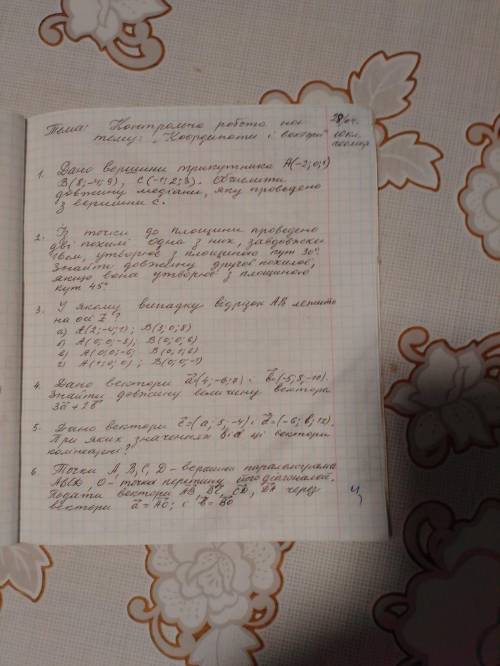 Тема: Контрольна робота на
тему: "Координати і вектори"
1. Дано вершини трикутника A(-2;0;1)
B(8;-4;9), C(-1;2;3). Обчислити
довжину медіани, яку проведено
з вершини C.
2. Із точки до площини проведено
дві похилі. Одна з них, завдовжки
см, утворює з площиною кут 30°.
Знайти довжину другої похилої,
якщо вона утворює з площиною
кут 45°
3. У якому випадку відрізок AB лежить
на осі Z?
а) A(2;-4;1); B(3;0;8)
A(0;0;-3); B(0;0;6)
в)
г) B(0;0;-1)
4. Дано вектори
Знайти довжину величину вектора
5. Дано вектори
При яких значеннях ці вектори
колінеарні?
6. Точки A, B, C, D - вершини паралелограма
ABCD, O - точка перетину його діагоналей.
Подати вектори AB, BC, CD, DA через
вектори a = AO; і b = BO